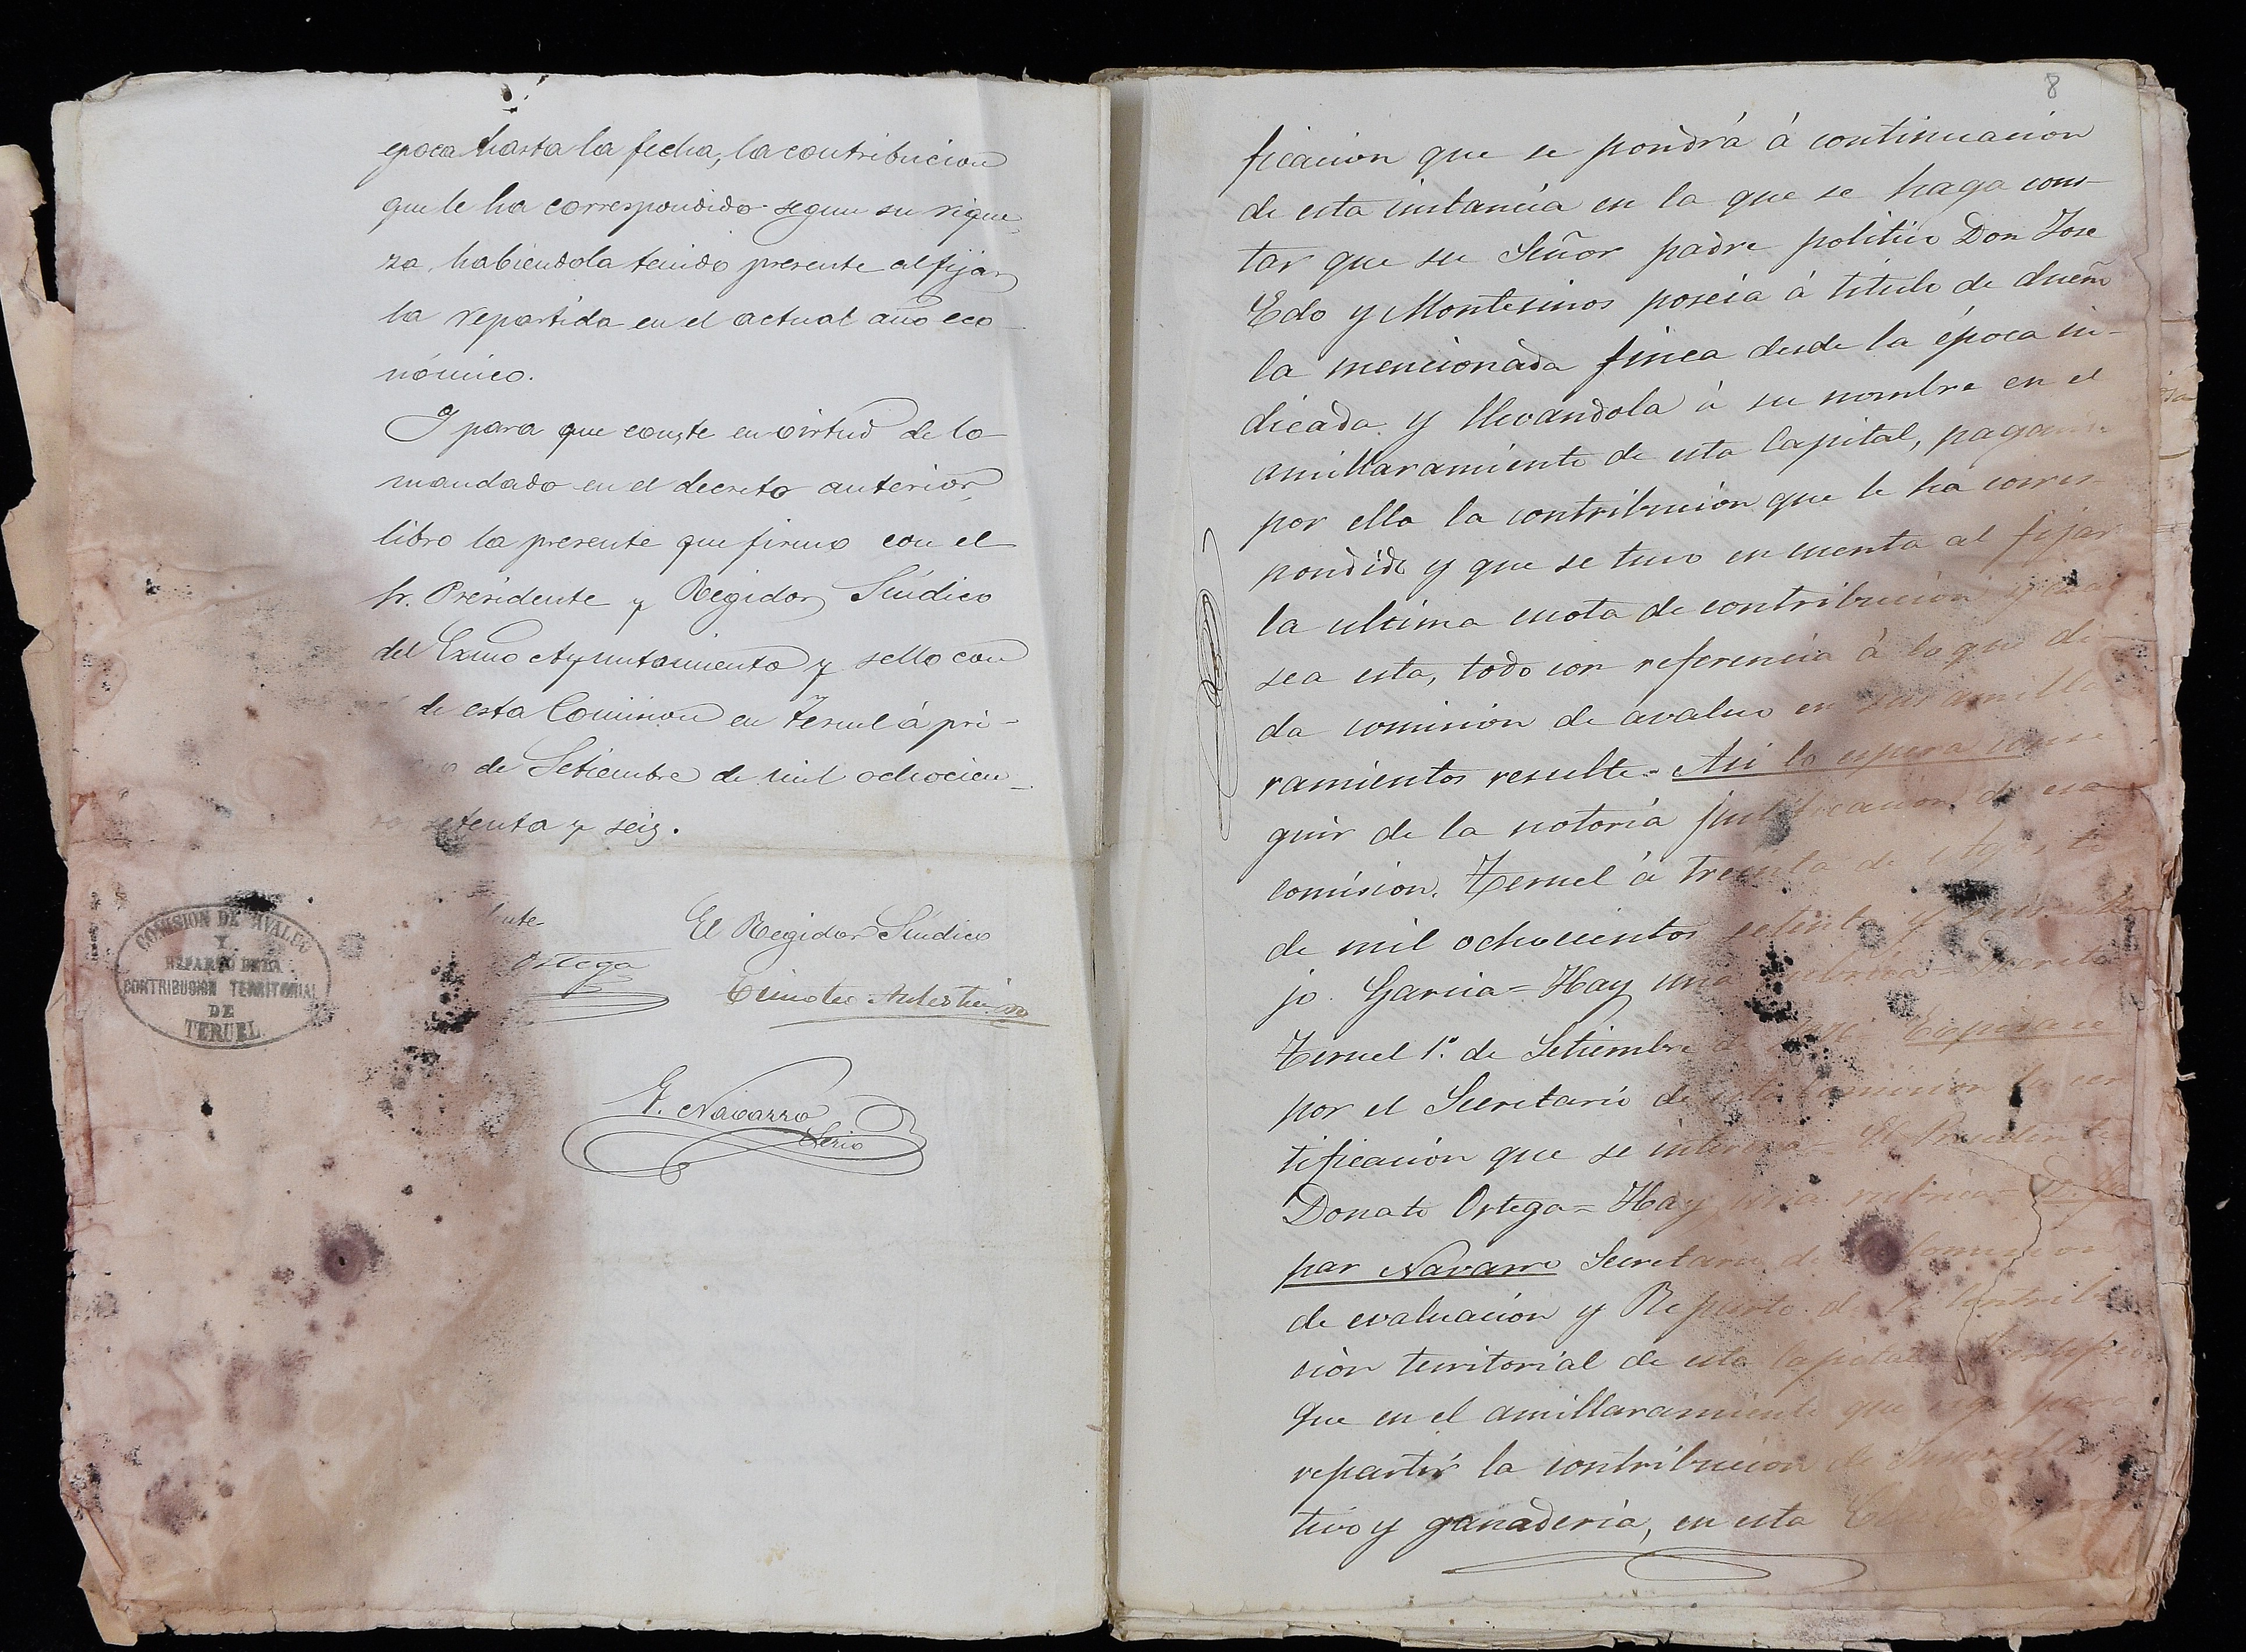 epoca hasta la fecha, la contribucion
que le ha correspondido segun su rique
za, habiendola tenido presente al fijar
la repartida en el actual año eco-
nómico.
Y para que conste en virtud de lo
mandado en el decreto anterior,
libro la presente que firmo con el
Sr. Presidente y Regidor Síndico
del Exmo Ayuntamiento y sello con
de esta Comision en Teruel á pri-
de Setiembre de mil ochocien-
setenta y seis.
El Regidor Síndico
Ortega
COMISION DE AVALUO
Y
REPARTO DE LA
CONTRIBUCION TERRITORIAL
DE
TERUEL
G. Navarro
Srio
8
ficacion que se pondrá á continuacion
de esta instancia en la que se haga cons-
tar que su Señor padre politico Don Jose
Edo y Montesinos poseia á titulo de dueño
la mencionada finca desde la época in-
dicada y llevandola á su nombre en el
amillaramiento de esta Capital, pagando
por ella la contribucion que le ha corres-
pondido y que se tuvo en cuenta al fijar
la ultima cuota de contribucion y cual
sea esta, todo con referencia á lo que di-
da comision de avaluo en sus amilla
ramientos resulte.= Asi lo espera conse
guir de la notoria justificacion de esa
comision. Teruel á treinta de Agosto
de mil ochocientos setenta y seis
jo. Garcia= Hay una rubrica= Decreto
Teruel 1º. de Setiembre de 1876= Expidase
por el Secretario de esta Comision la cer
tificacion que se interesa= El Presidente
Donato Ortega= Hay una rubrica= D. Gas
par Navarro Secretario de la Comision
de evaluacion y Reparto de la Contribu
cion territorial de esta Capital= Certifico
Que en el amillaramiento que rige para
repartir la contribucion de Inmuebles,
tivo y ganaderia, en esta Ciudad